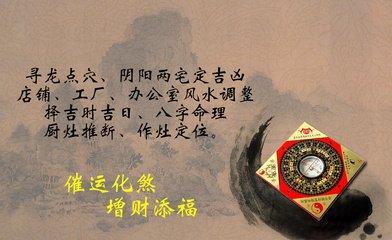 寻龙点穴、阴阳两宅定吉凶
店铺、工厂、办公室风水调整
择吉时吉日、八字命理
厨灶推断、作灶定位。
催运化煞
增财添福